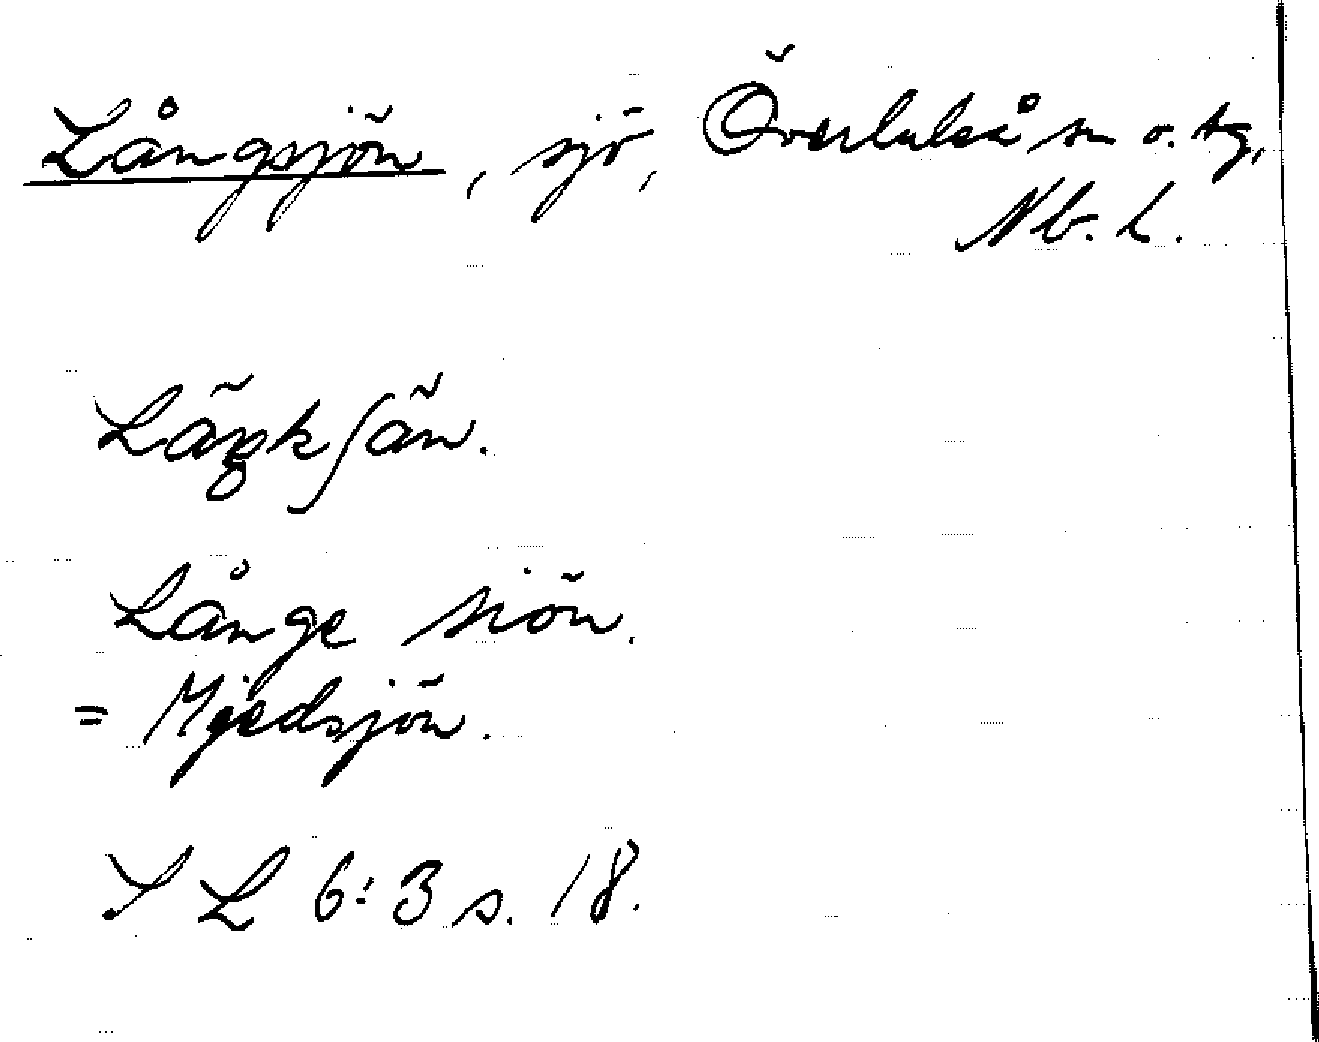 Långsjön, sjö, Överluleå sn o. tg,
Nb. L.
Långe siön.
= Mjedsjön.
S L 6:3 s. 18.